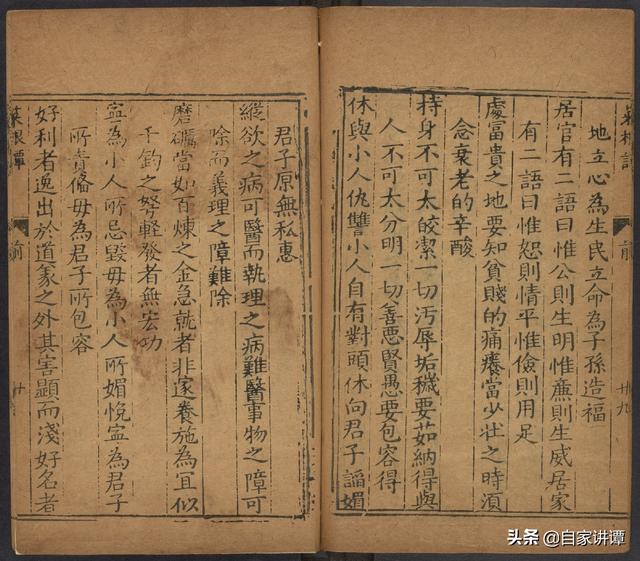 地立心為生民立命為子孫造福
居官有二語曰惟公則生明惟廉則生威居家
有二語曰惟恕則情平惟儉則用足
處富貴之地要知貧賤的痛癢當少壯之時須
念衰老的辛酸
持身不可太皎潔一切汚辱垢穢要茹納得與
人不可太分明一切善惡賢愚要包容得
休與小人仇讐小人自有對頭休向君子謟媚
菜根譚
前
廿九
君子原無私惠
縱欲之病可醫而執理之病難醫事物之障可
除而義理之障難除
磨礪當如百煉之金急就者非邃養施為宜似
千鈞之弩輕發者無宏功
寧為小人所忌毀毋為小人所媚悅寧為君子
所責俻毋為君子所包容
好利者逸出於道義之外其害顯而淺好名者
菜根譚
前
头条 @自家讲谭